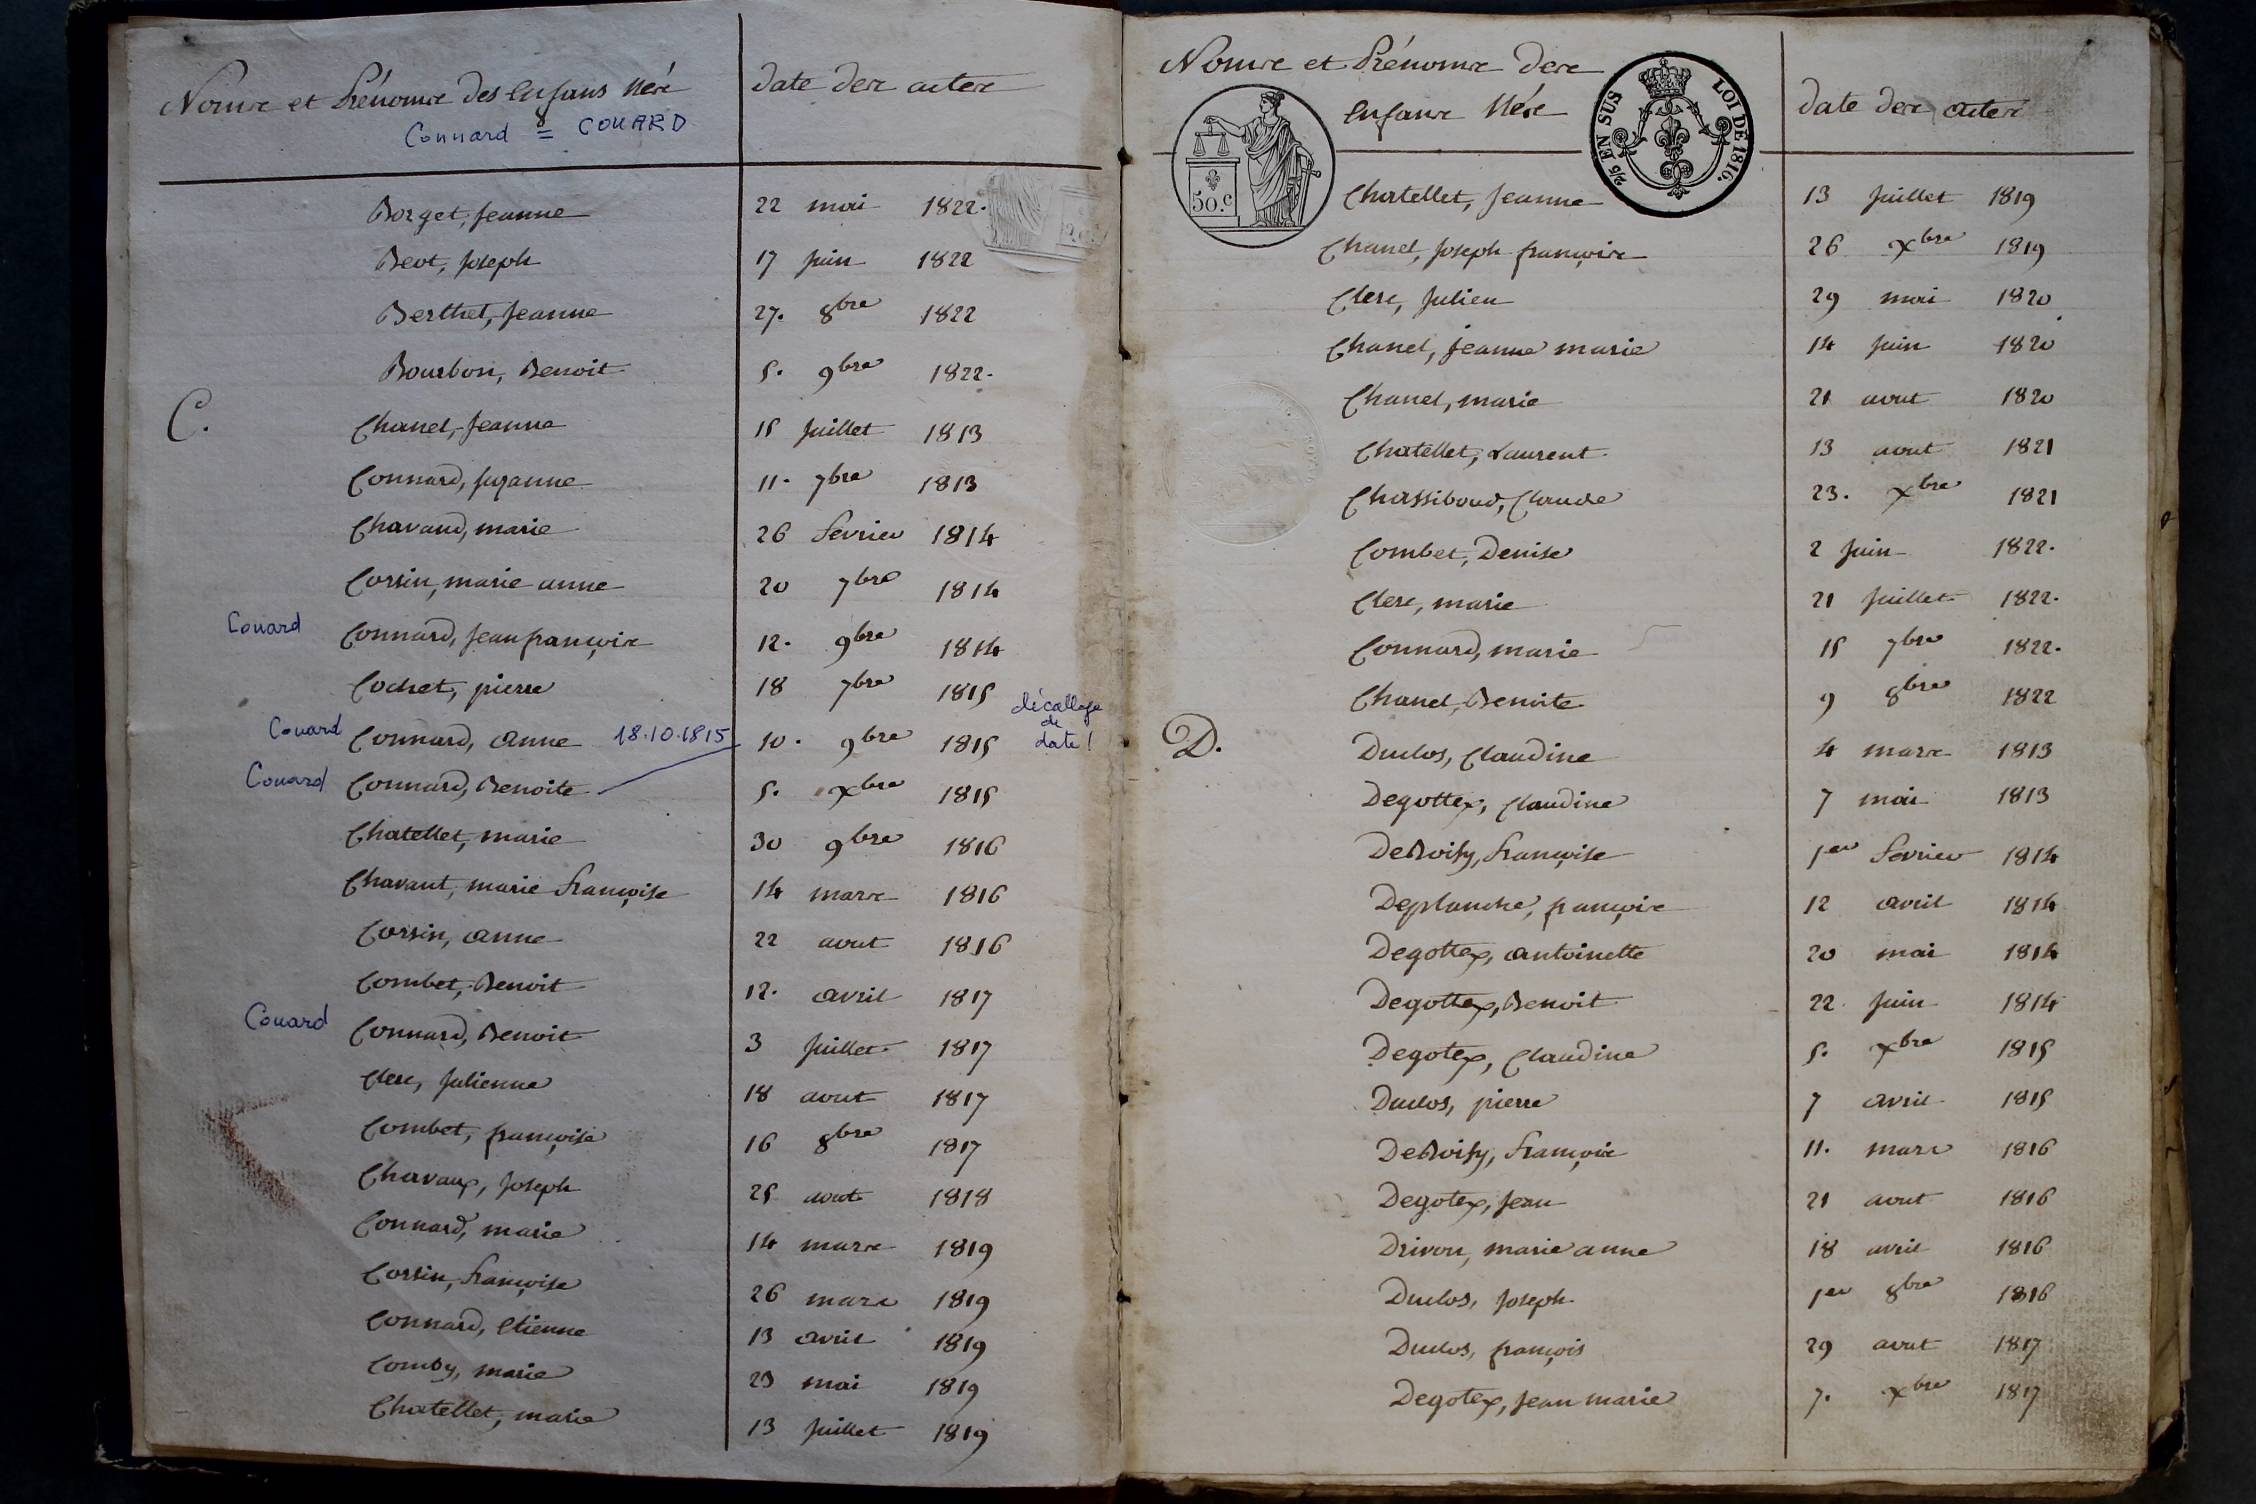 Noms et Prénoms des Enfans Nés
date des actes
Connard = COUARD
Borget, Jeanne 22 mai 1822.
Beot, Joseph 17 Juin 1822
Berthet, Jeanne 27. 8bre 1822
Bourbon, Benoit 5. 9bre 1822.
C.
Chanel, Jeanne 15 Juillet 1813
Connard, Suzanne 11. 7bre 1813
Chavand, marie 26 fevrier 1814
Corsin, marie anne 20 7bre 1814
Couard Connard, Jean françois 12. 9bre 1814
Cochet, pierre 18 7bre 1815
Couard Connard, anne 18.10.1815 10. 9bre 1815 décallage de date!
Couard Connard, Benoite 5. xbre 1815
Chatellet, marie 30 9bre 1816
Chavant, marie françoise 14 mars 1816
Corsin, anne 22 aout 1816
Combet, Benoit 12. avril 1817
Couard Connard, Benoit 3 Juillet 1817
Clerc, Julienne 18 aout 1817
Combet, françoise 16 8bre 1817
Chavaux, Joseph 25 aout 1818
Connard, marie 14 mars 1819
Corsin, françoise 26 mars 1819
Connard, Etienne 13 avril 1819
Comby, marie 23 mai 1819
Chatellet, marie 13 Juillet 1819
Noms et Prénoms des
enfans Nés
date des actes
50.c
2/5 EN SUS LOI DE 1816.
Chatellet, Jeanne 13 Juillet 1819
Chanel, Joseph françois 26 xbre 1819
Clerc, Julien 29 mai 1820
Chanel, Jeanne marie 14 Juin 1820
Chanel, marie 21 aout 1820
Chatellet, Laurent 13 aout 1821
Chassiboud, Claude 23. xbre 1821
Combet, Denise 2 Juin 1822.
Clerc, marie 21 Juillet 1822.
Connard, marie 15 7bre 1822.
Chanel, Benoite 9 8bre 1822
D.
Duclos, Claudine 4 mars 1813
Degottex, Claudine 7 mai 1813
DeBoissy, françoise 1er fevrier 1814
Deplanche, françois 12 avril 1814
Degottex, antoinette 20 mai 1814
Degottex, Benoit 22 Juin 1814
Degotex, Claudine 5. xbre 1815
Duclos, pierre 7 avril 1815
DeBoissy, françois 11. mars 1816
Degotex, Jean 21 aout 1816
Drivon, marie anne 18 avril 1816
Duclos, Joseph 1er 8bre 1816
Duclos, françois 29 aout 1817
Degotex, Jean marie 7. xbre 1817